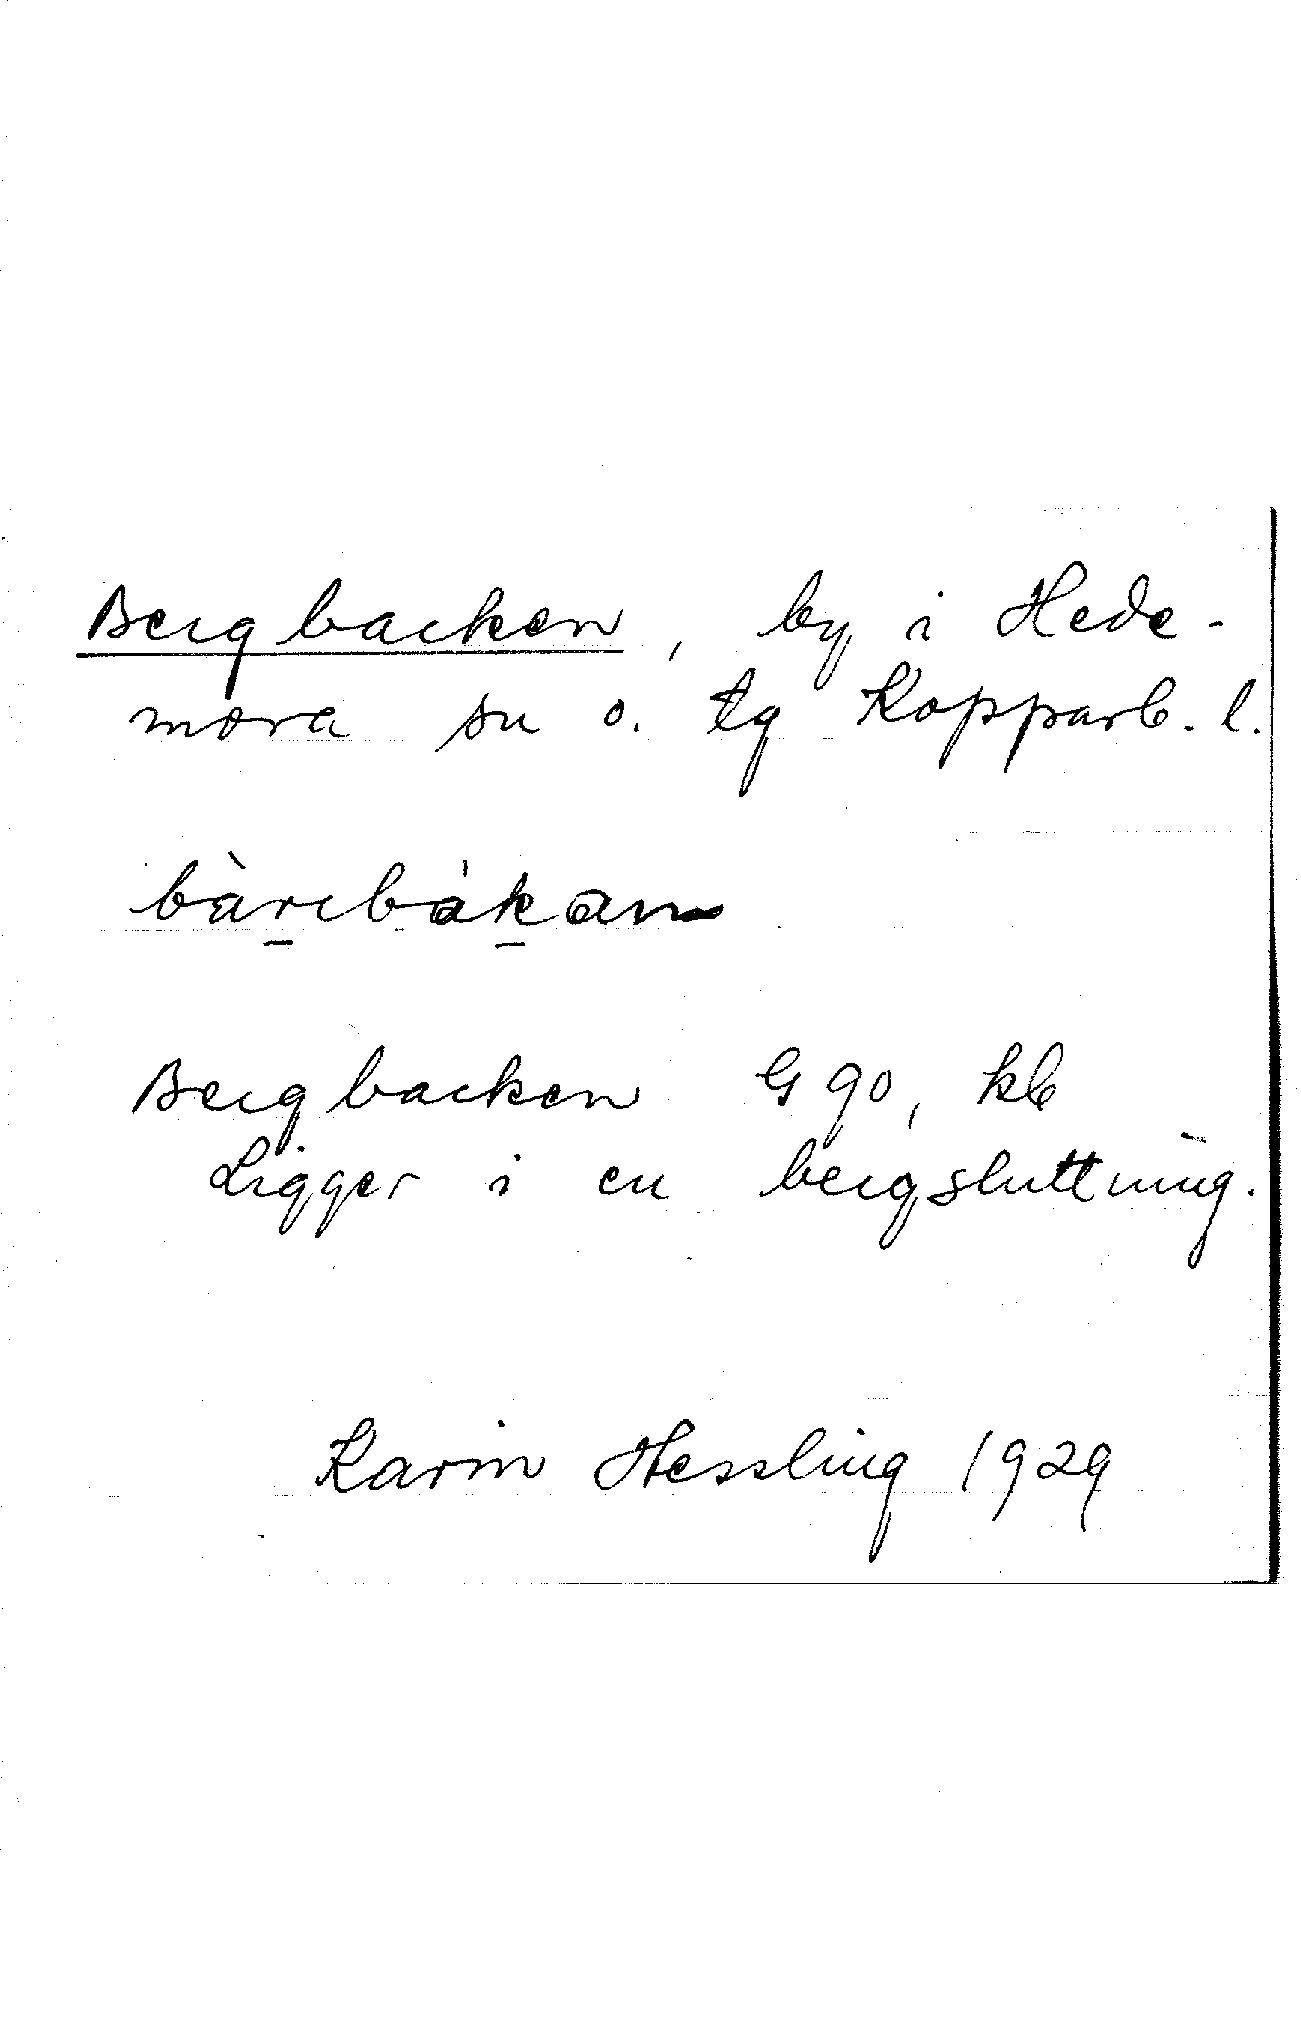 Bergbacken, by i Hede-
mora sn o. tg Kopparb. l.
bàrıbákan
Bergbacken G 90, kb
Ligger i en bergsluttning.
Karin Hessling 1929